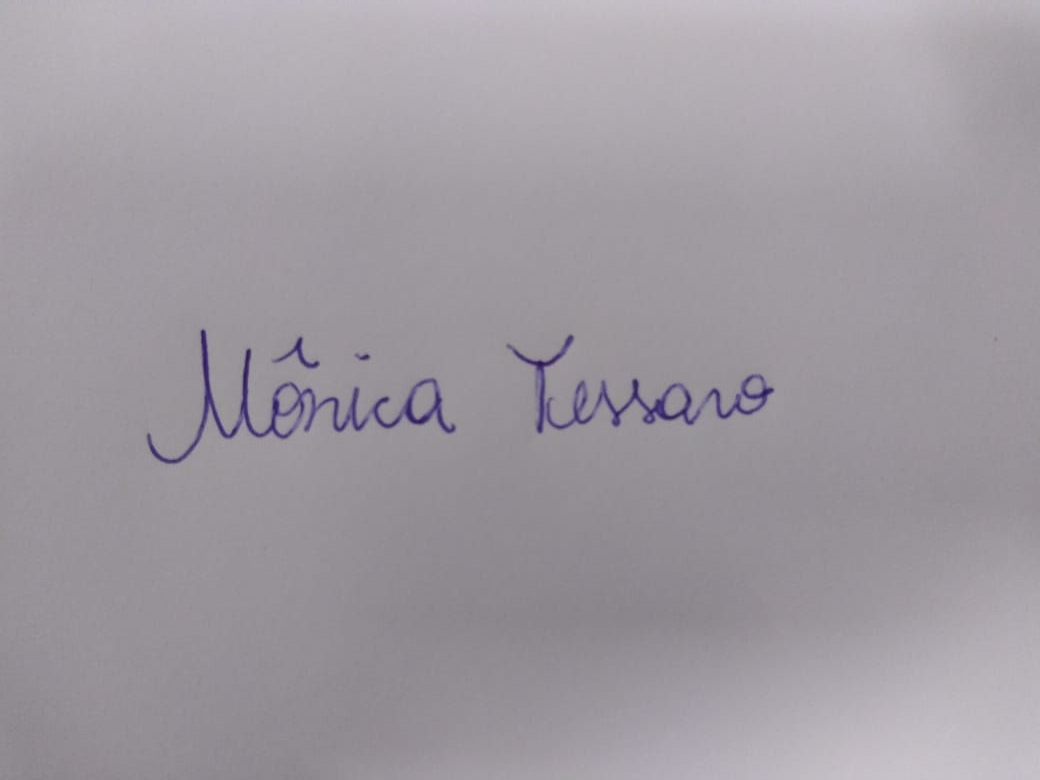 Mônica Tessaro